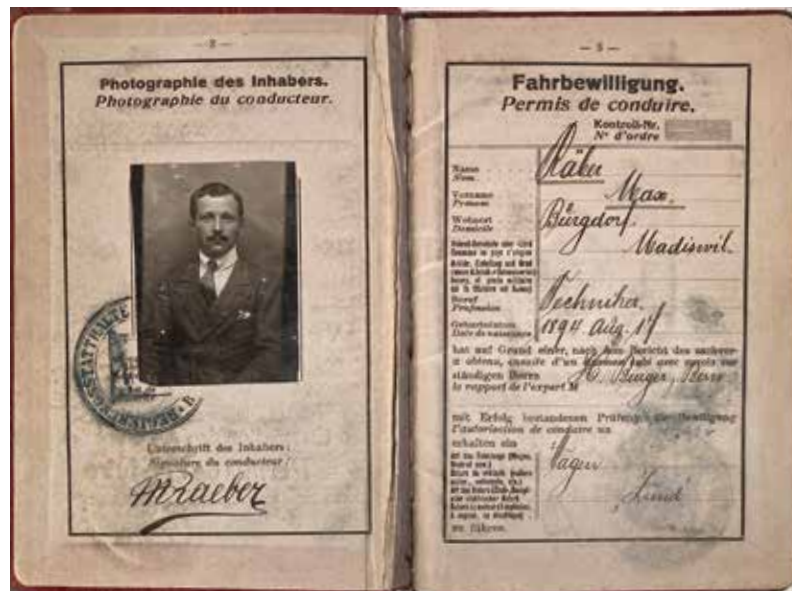 — 2 —
Photographie des Inhabers.
Photographie du conducteur.
Unterschrift des Inhabers:
Signature du conducteur:
MRaeber
— 3 —
Fahrbewilligung.
Permis de conduire.
Kontroll-Nr.
Nº d'ordre
Name
Nom
Räber
Vorname
Prénom
Max.
Wohnort
Domicile
Burgdorf
Madiswil.
Beruf
Profession
Techniker.
Geburtsdatum
Date de naissance
1894 Aug. 17
hat auf Grund einer, nach dem Bericht des sachver-
a obtenu, ensuite d'un examen subi avec succès sur
ständigen Herrn
le rapport de l'expert M
H. Burger, Bern
mit Erfolg bestandenen Prüfung die Bewilligung
l'autorisation de conduire un
erhalten ein
Wagen
zu führen.